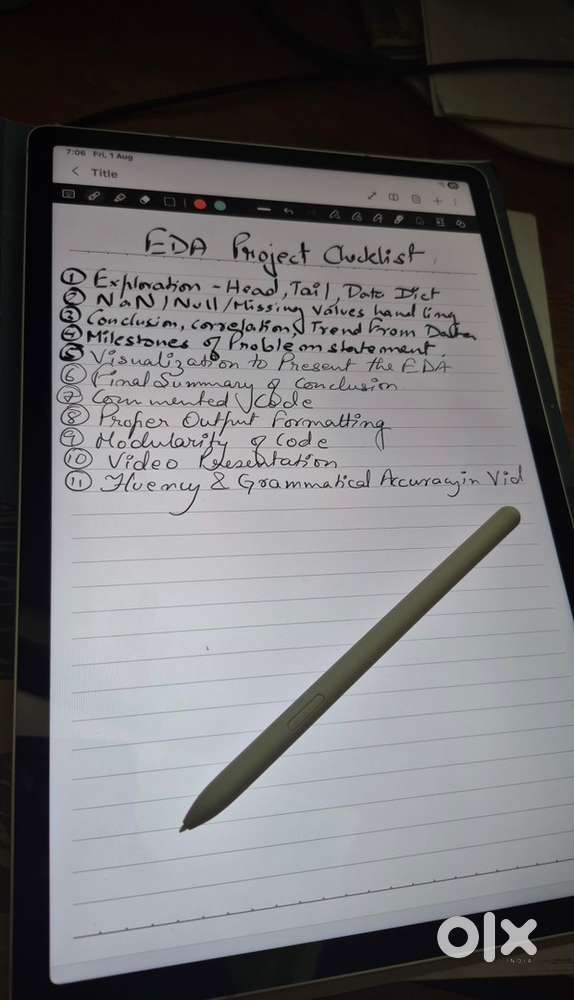 7:06 Fri, 1 Aug
< Title
EDA Project Checklist
① Exploration - Head, Tail, Data Dict
② NaN/Null/Missing Values handling
③ Conclusion, correlation, Trend From Data
④ Milestones of Problem statement.
⑤ Visualization to Present the EDA
⑥ Final Summary of Conclusion
⑦ Commented Code
⑧ Proper Output Formatting
⑨ Modularity of Code
⑩ Video Presentation
⑪ Fluency & Grammatical Accuracy in Vid
olx
INDIA